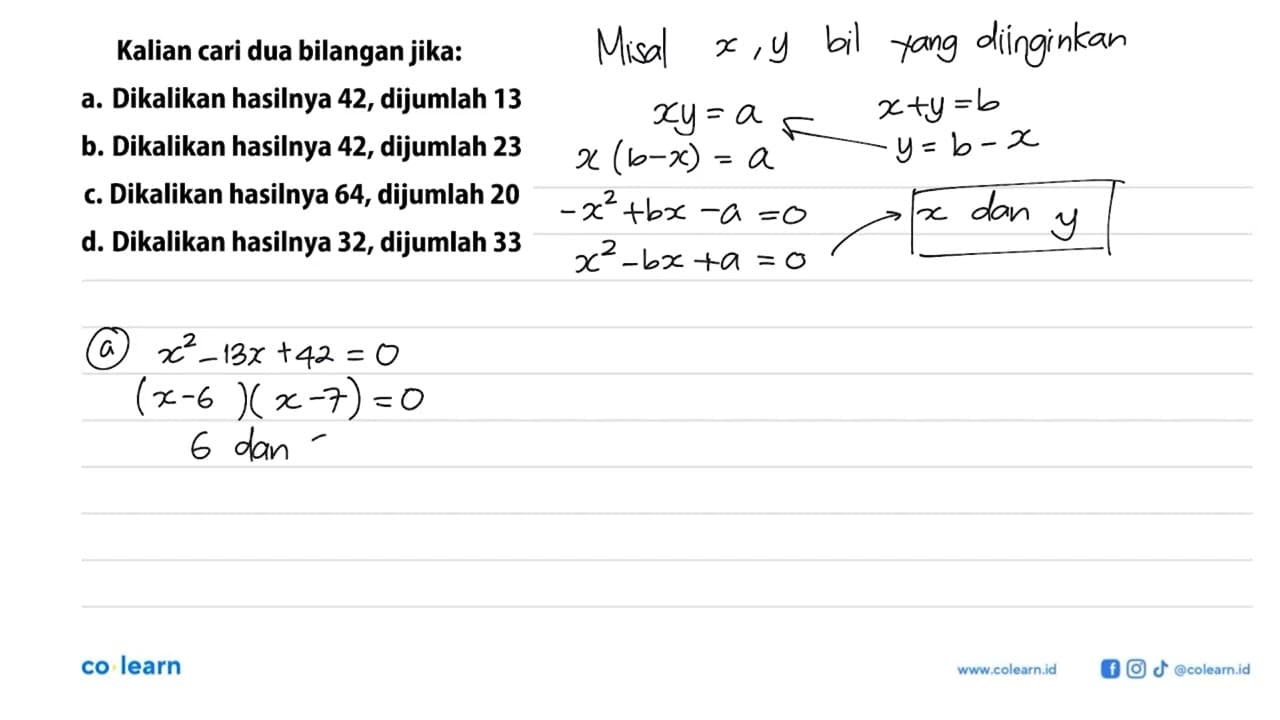 Kalian cari dua bilangan jika:
a. Dikalikan hasilnya 42, dijumlah 13
b. Dikalikan hasilnya 42, dijumlah 23
c. Dikalikan hasilnya 64, dijumlah 20
d. Dikalikan hasilnya 32, dijumlah 33
Misal x, y bil yang diinginkan
xy = a
x + y = b
y = b - x
x (b-x) = a
-x² + bx - a = 0
x² - bx + a = 0
x dan y
a x² - 13x + 42 = 0
(x-6)(x-7) = 0
6 dan
co learn
www.colearn.id
@colearn.id